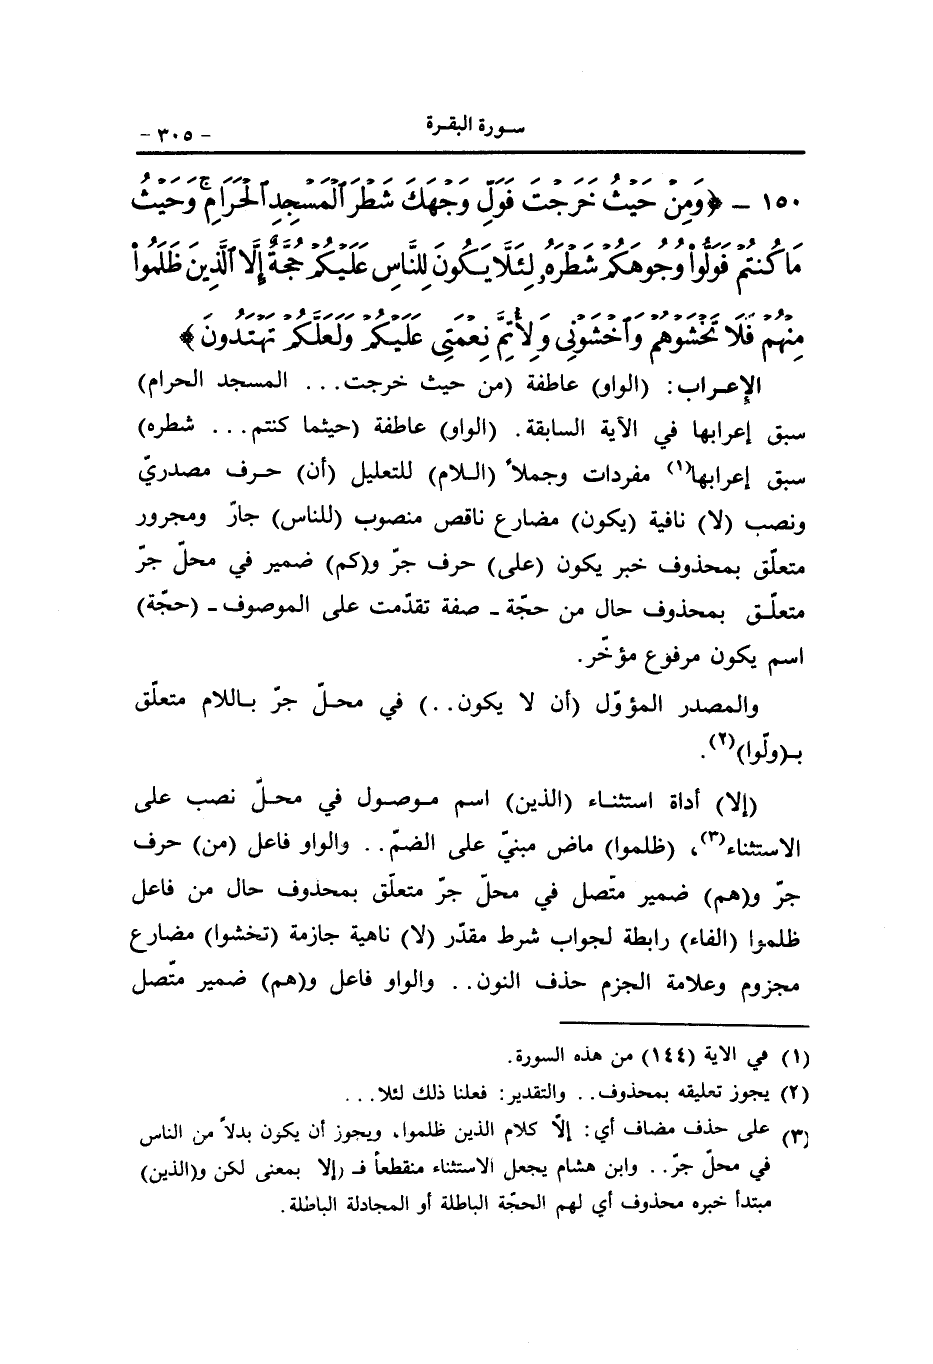 سورة البقرة
- ٣٠٥ -
١٥٠ - ﴿وَمِنْ حَيْثُ خَرَجْتَ فَوَلِّ وَجْهَكَ شَطْرَ ٱلْمَسْجِدِ ٱلْحَرَامِ ۚ وَحَيْثُ
مَا كُنتُمْ فَوَلُّوا۟ وُجُوهَكُمْ شَطْرَهُۥ لِئَلَّا يَكُونَ لِلنَّاسِ عَلَيْكُمْ حُجَّةٌ إِلَّا ٱلَّذِينَ ظَلَمُوا۟
مِنْهُمْ فَلَا تَخْشَوْهُمْ وَٱخْشَوْنِى وَلِأُتِمَّ نِعْمَتِى عَلَيْكُمْ وَلَعَلَّكُمْ تَهْتَدُونَ﴾
الإعراب: (الواو) عاطفة (من حيث خرجت... المسجد الحرام)
سبق إعرابها في الآية السابقة. (الواو) عاطفة (حيثما كنتم... شطره)
سبق إعرابها(١) مفردات وجملاً (اللام) للتعليل (أن) حرف مصدريّ
ونصب (لا) نافية (يكون) مضارع ناقص منصوب (للناس) جارّ ومجرور
متعلّق بمحذوف خبر يكون (على) حرف جرّ و(كم) ضمير في محلّ جرّ
متعلّق بمحذوف حال من حجّة - صفة تقدّمت على الموصوف - (حجّة)
اسم يكون مرفوع مؤخّر.
والمصدر المؤوّل (أن لا يكون..) في محلّ جرّ باللام متعلّق
بـ(ولّوا)(٢).
(إلا) أداة استثناء (الذين) اسم موصول في محلّ نصب على
الاستثناء(٣)، (ظلموا) ماض مبنيّ على الضمّ.. والواو فاعل (من) حرف
جرّ و(هم) ضمير متّصل في محلّ جرّ متعلّق بمحذوف حال من فاعل
ظلموا (الفاء) رابطة لجواب شرط مقدّر (لا) ناهية جازمة (تخشوا) مضارع
مجزوم وعلامة الجزم حذف النون.. والواو فاعل و(هم) ضمير متّصل
(١) في الاية (١٤٤) من هذه السورة.
(٢) يجوز تعليقه بمحذوف.. والتقدير: فعلنا ذلك لئلا...
(٣) على حذف مضاف أي: إلّا كلام الذين ظلموا، ويجوز أن يكون بدلاً من الناس
في محلّ جرّ.. وابن هشام يجعل الاستثناء منقطعاً فـ (إلا بمعنى لكن و(الذين)
مبتدأ خبره محذوف أي لهم الحجّة الباطلة أو المجادلة الباطلة.